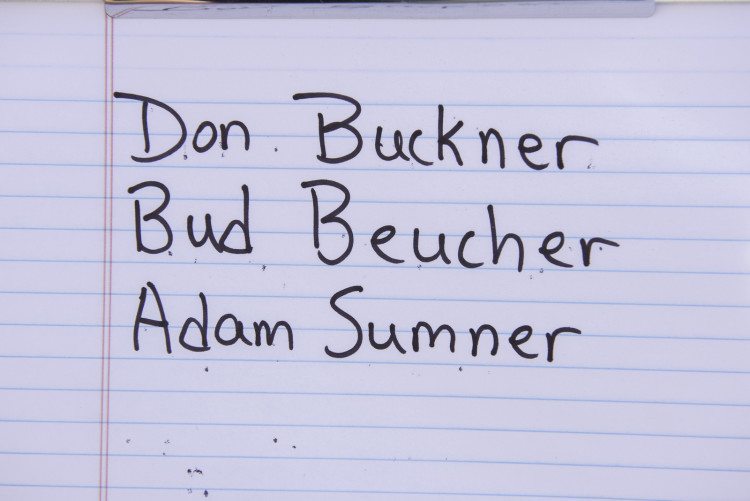 Don Buckner
Bud Beucher
Adam Sumner